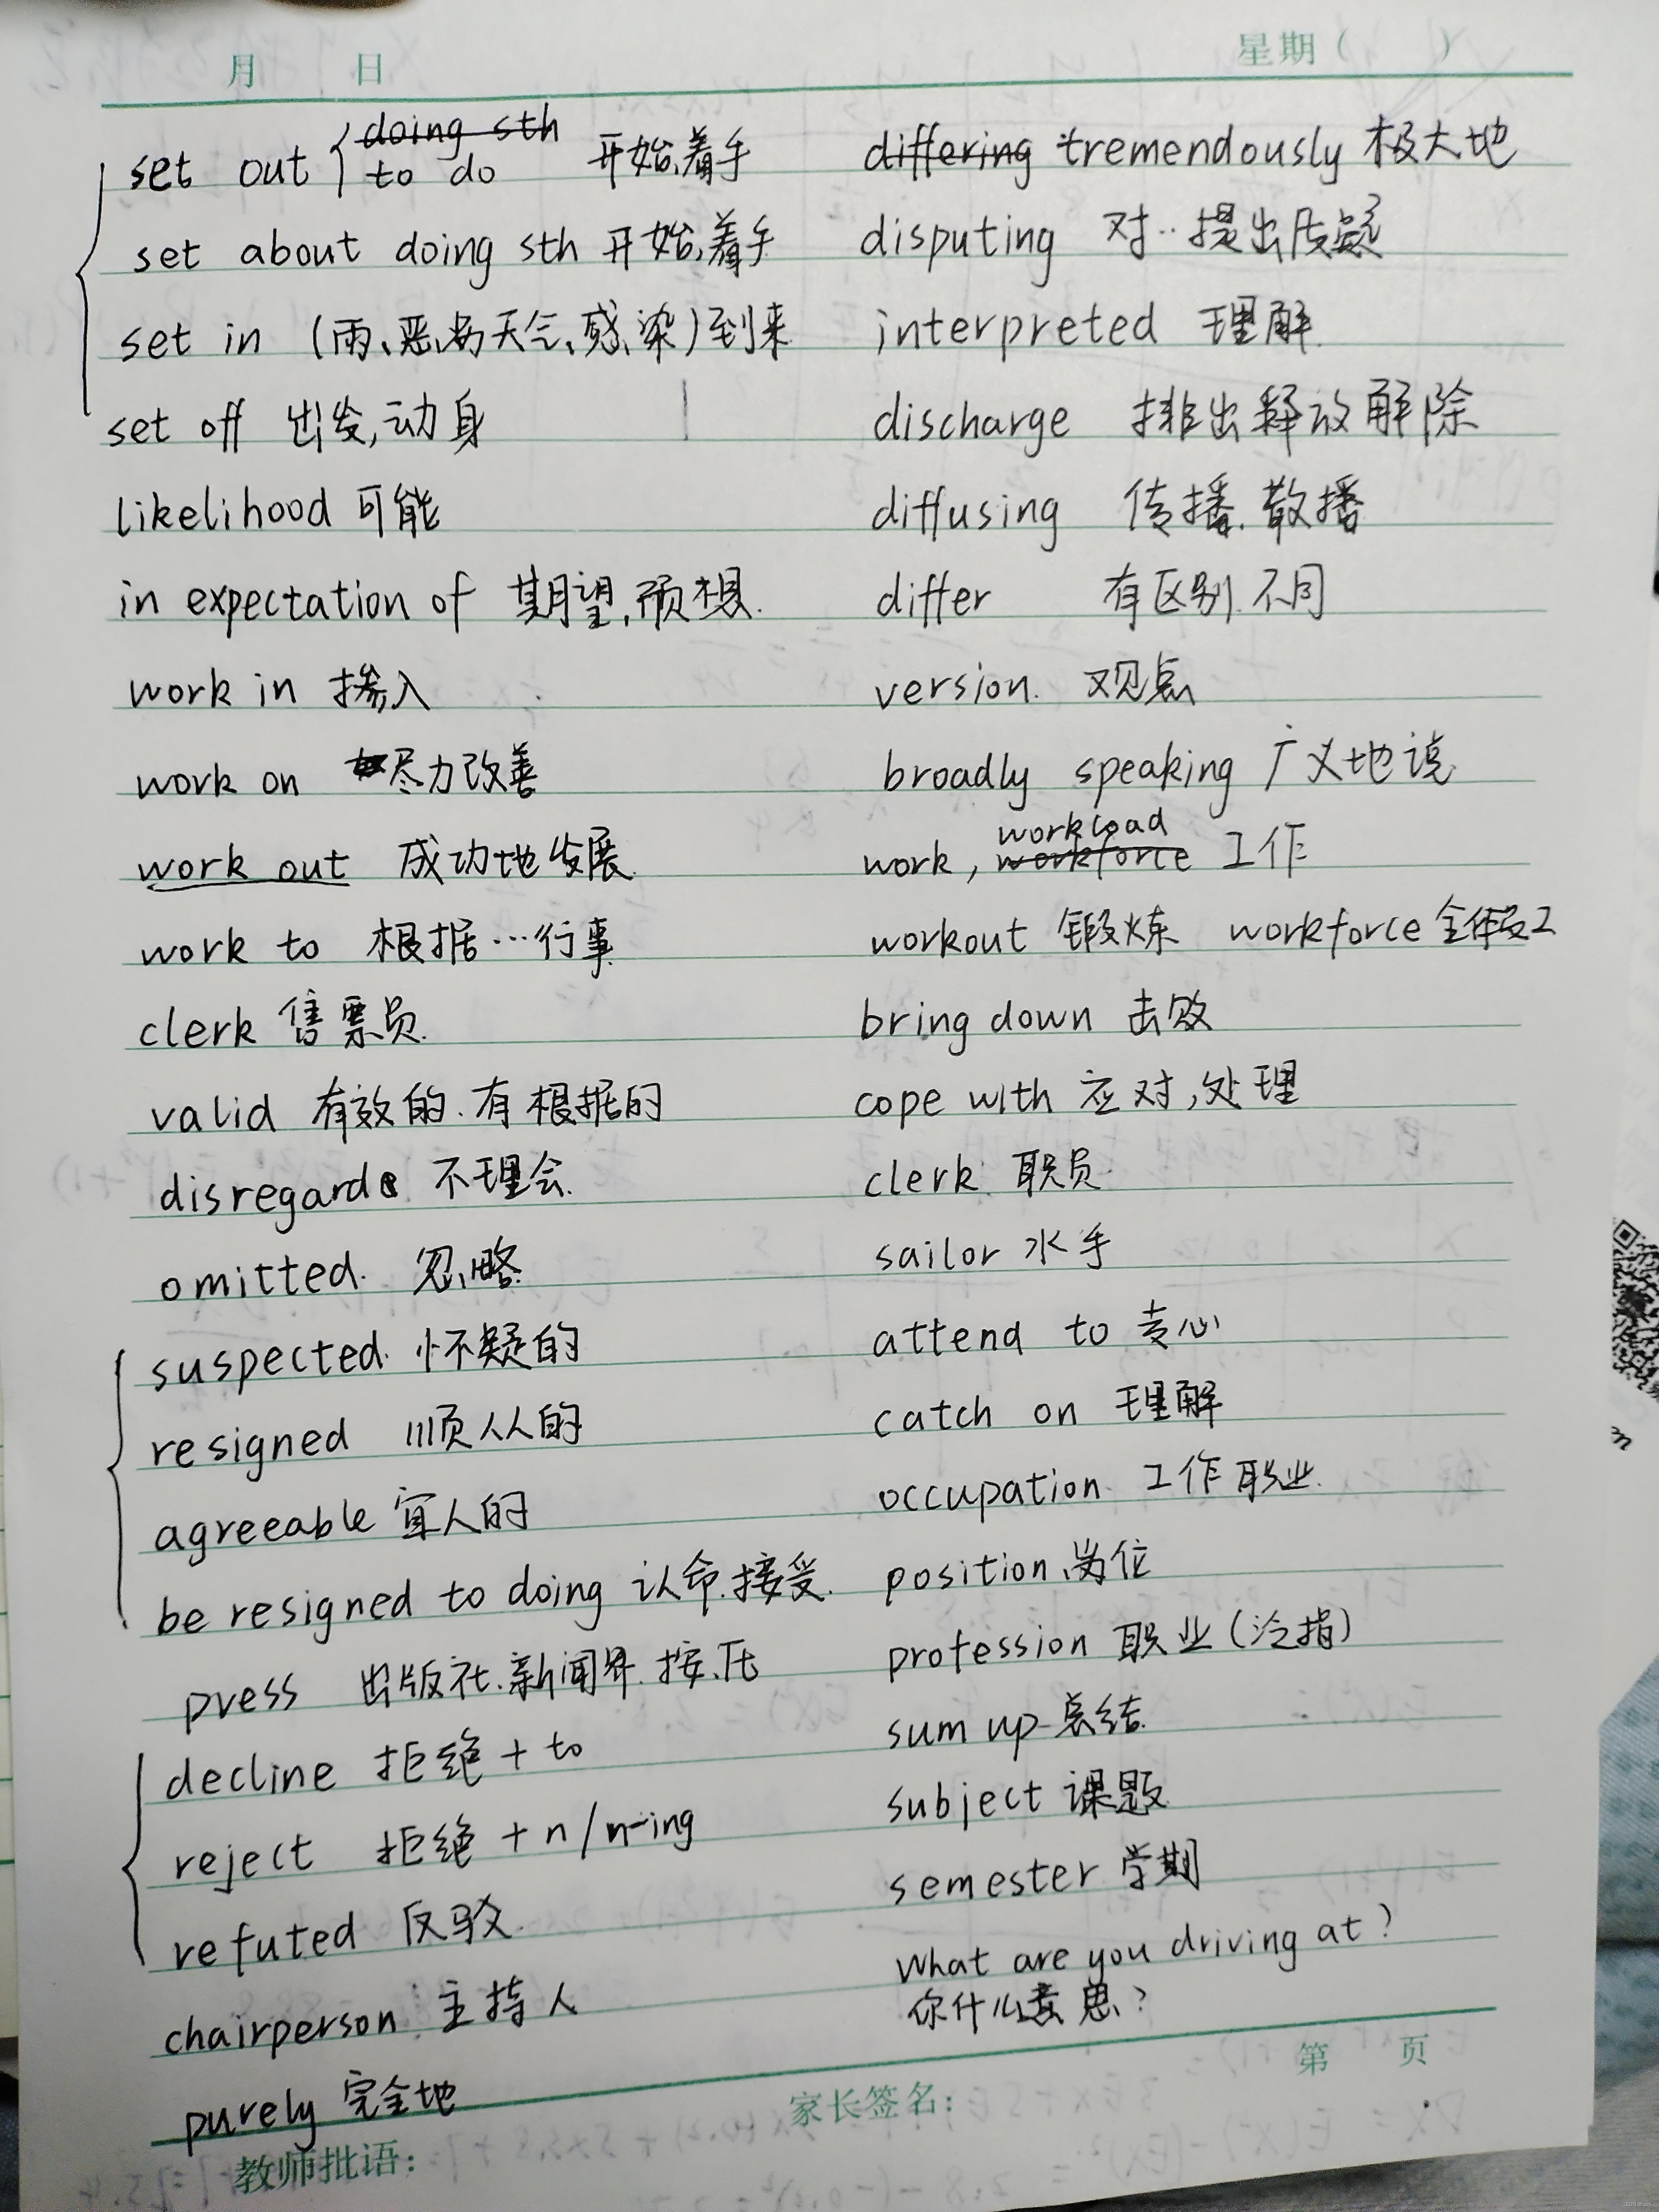 月 日 星期( )
set out { doing sth
to do 开始、着手
set about doing sth 开始、着手
set in (雨、恶劣天气、感染)到来
set off 出发,动身
likelihood 可能
in expectation of 期望,预想.
work in 掺入
work on 尽力改善
work out 成功地发展
work to 根据…行事
clerk 售票员
valid 有效的.有根据的
disregard 不理会.
omitted. 忽略
suspected. 怀疑的
resigned 顺从的
agreeable 宜人的
be resigned to doing 认命.接受.
press 出版社.新闻界.按.压
decline 拒绝 + to
reject 拒绝 + n/n-ing
refuted 反驳.
chairperson 主持人
purely 完全地
differing tremendously 极大地
disputing 对..提出质疑
interpreted 理解
discharge 排出释放解除
diffusing 传播.散播
differ 有区别.不同
version. 观点
broadly speaking 广义地说
workload
work, workforce 工作
workout 锻炼 workforce 全体员工
bring down 击败
cope with 应对,处理
clerk 职员
sailor 水手
attend to 专心
catch on 理解
occupation 工作职业.
position 岗位
profession 职业(泛指)
sum up 总结
subject 课题
semester 学期
What are you driving at?
你什么意思?
第 页
家长签名:
教师批语: